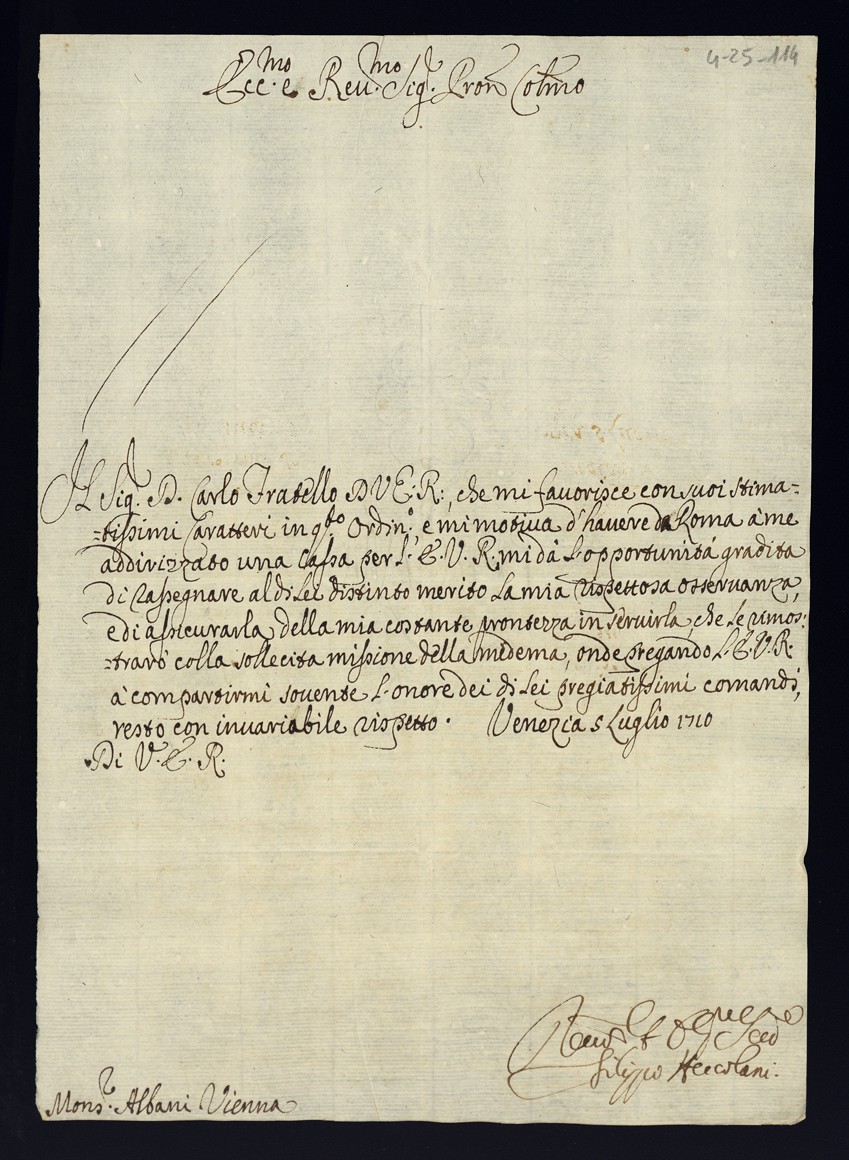 4-25-114
Ecc.mo e Reu.mo Sig.r Pron Colmo
Il Sig.r D. Carlo Fratello D V E: R:, che mi fauorisce con suoi stima=
=tissimi Caratteri in q.sto Ordin.o, e mi motiua d'hauere da Roma à me
addirizzato una Cassa per l. E. V. R. mi dà l'opportunità gradita
di rassegnare al di Lei distinto merito la mia rispettosa osseruanza,
e di assicurarla della mia costante prontezza in seruirla, che le dimos:
=trarò colla sollecita missione della medema, onde pregando l. E. V. R:
à compartirmi souente l'onore dei di Lei pregiatissimi comandi,
resto con inuariabile rispetto. Venezia 5 Luglio 1710
Di V. E. R.
Filippo Hercolani.
Mons.r Albani Vienna